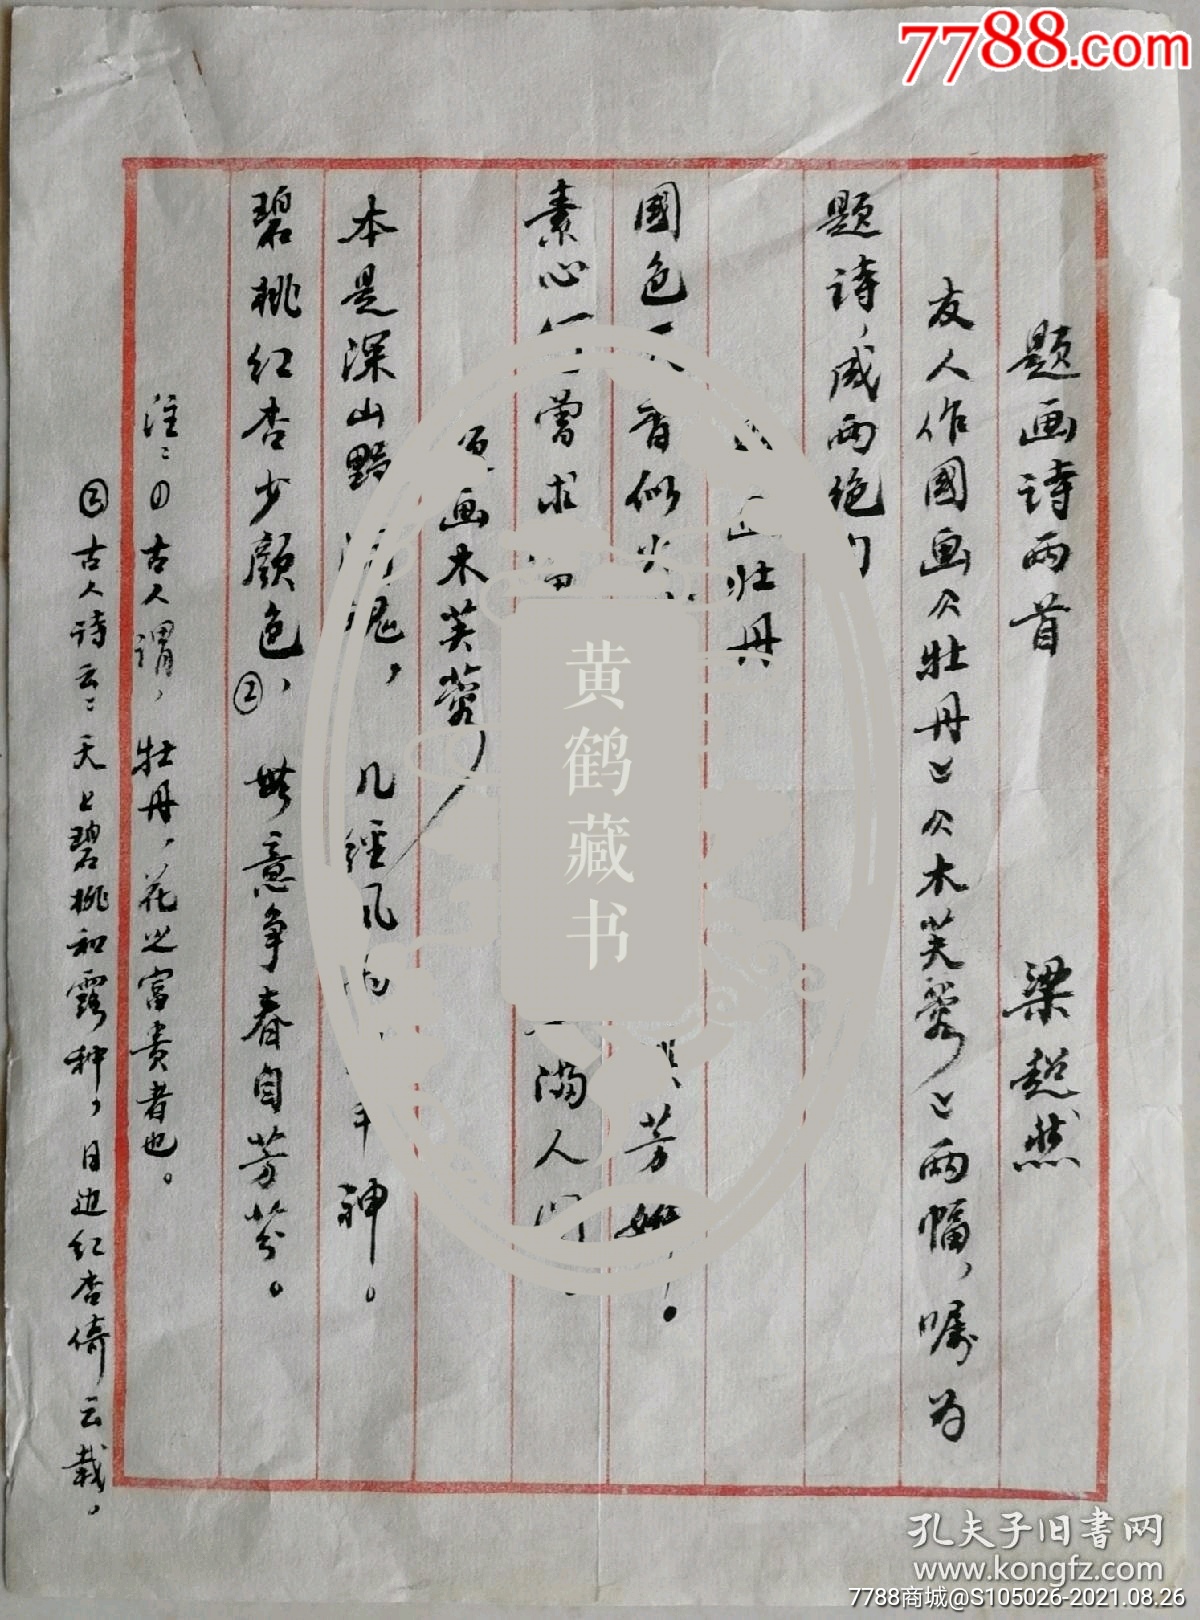 7788.com
题画诗两首 梁超然
友人作國画《牡丹》《木芙蓉》两幅，嘱为
题诗，成两绝
牡丹
國色 香似 芳
素心 曾求 满人间
题画木芙蓉
本是深山野 魂， 几经风 神。
碧桃红杏少颜色，② 無意争春自芳芬。
注：① 古人谓，牡丹，花之富贵者也。
② 古人诗云：天上碧桃和露种，日边红杏倚云栽。
黄鹤藏书
孔夫子旧书网
www.kongfz.com
7788商城@S105026-2021.08.26